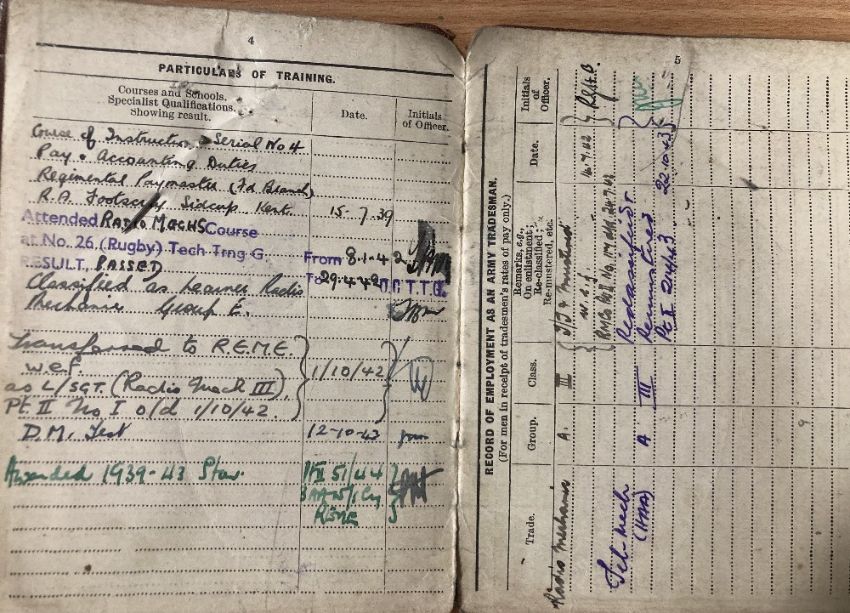 4
PARTICULARS OF TRAINING.
Courses and Schools.
Specialist Qualifications.
Showing result.
Date.
Initials
of Officer.
Course of Instruction Serial No 4
Pay & Accounting Duties
Regimental Paymaster (Fd Branch)
R.A. Footscray Sidcup, Kent. 15.7.39
Attended RADIO MECHS Course
at No. 26, (Rugby) Tech Trng G. From 8-1-42
RESULT, PASSED To 29-4-42 T.T.G.
Classified as Learner Radio
Mechanic Group E.
Transferred to R.E.M.E.
w.e.f 1/10/42
as L/SGT. (Radio Mech III)
Pt. II No I o/d 1/10/42.
D.M. Test 12-10-42
Awarded 1939-43 Star. PtII 51/44
REME
5
RECORD OF EMPLOYMENT AS AN ARMY TRADESMAN.
(For men in receipt of tradesmen's rates of pay only.)
Trade.
Group.
Class.
Remarks, e.g.,
On enlistment,
Re-classified,
Re-mustered, etc.
Date.
Initials
of
Officer.
Radio Mechanic A. III
w.e.f.
Tel. Mech A III Reclassified &
(HAA) Remustered
Pt II 214/43 22.10.43